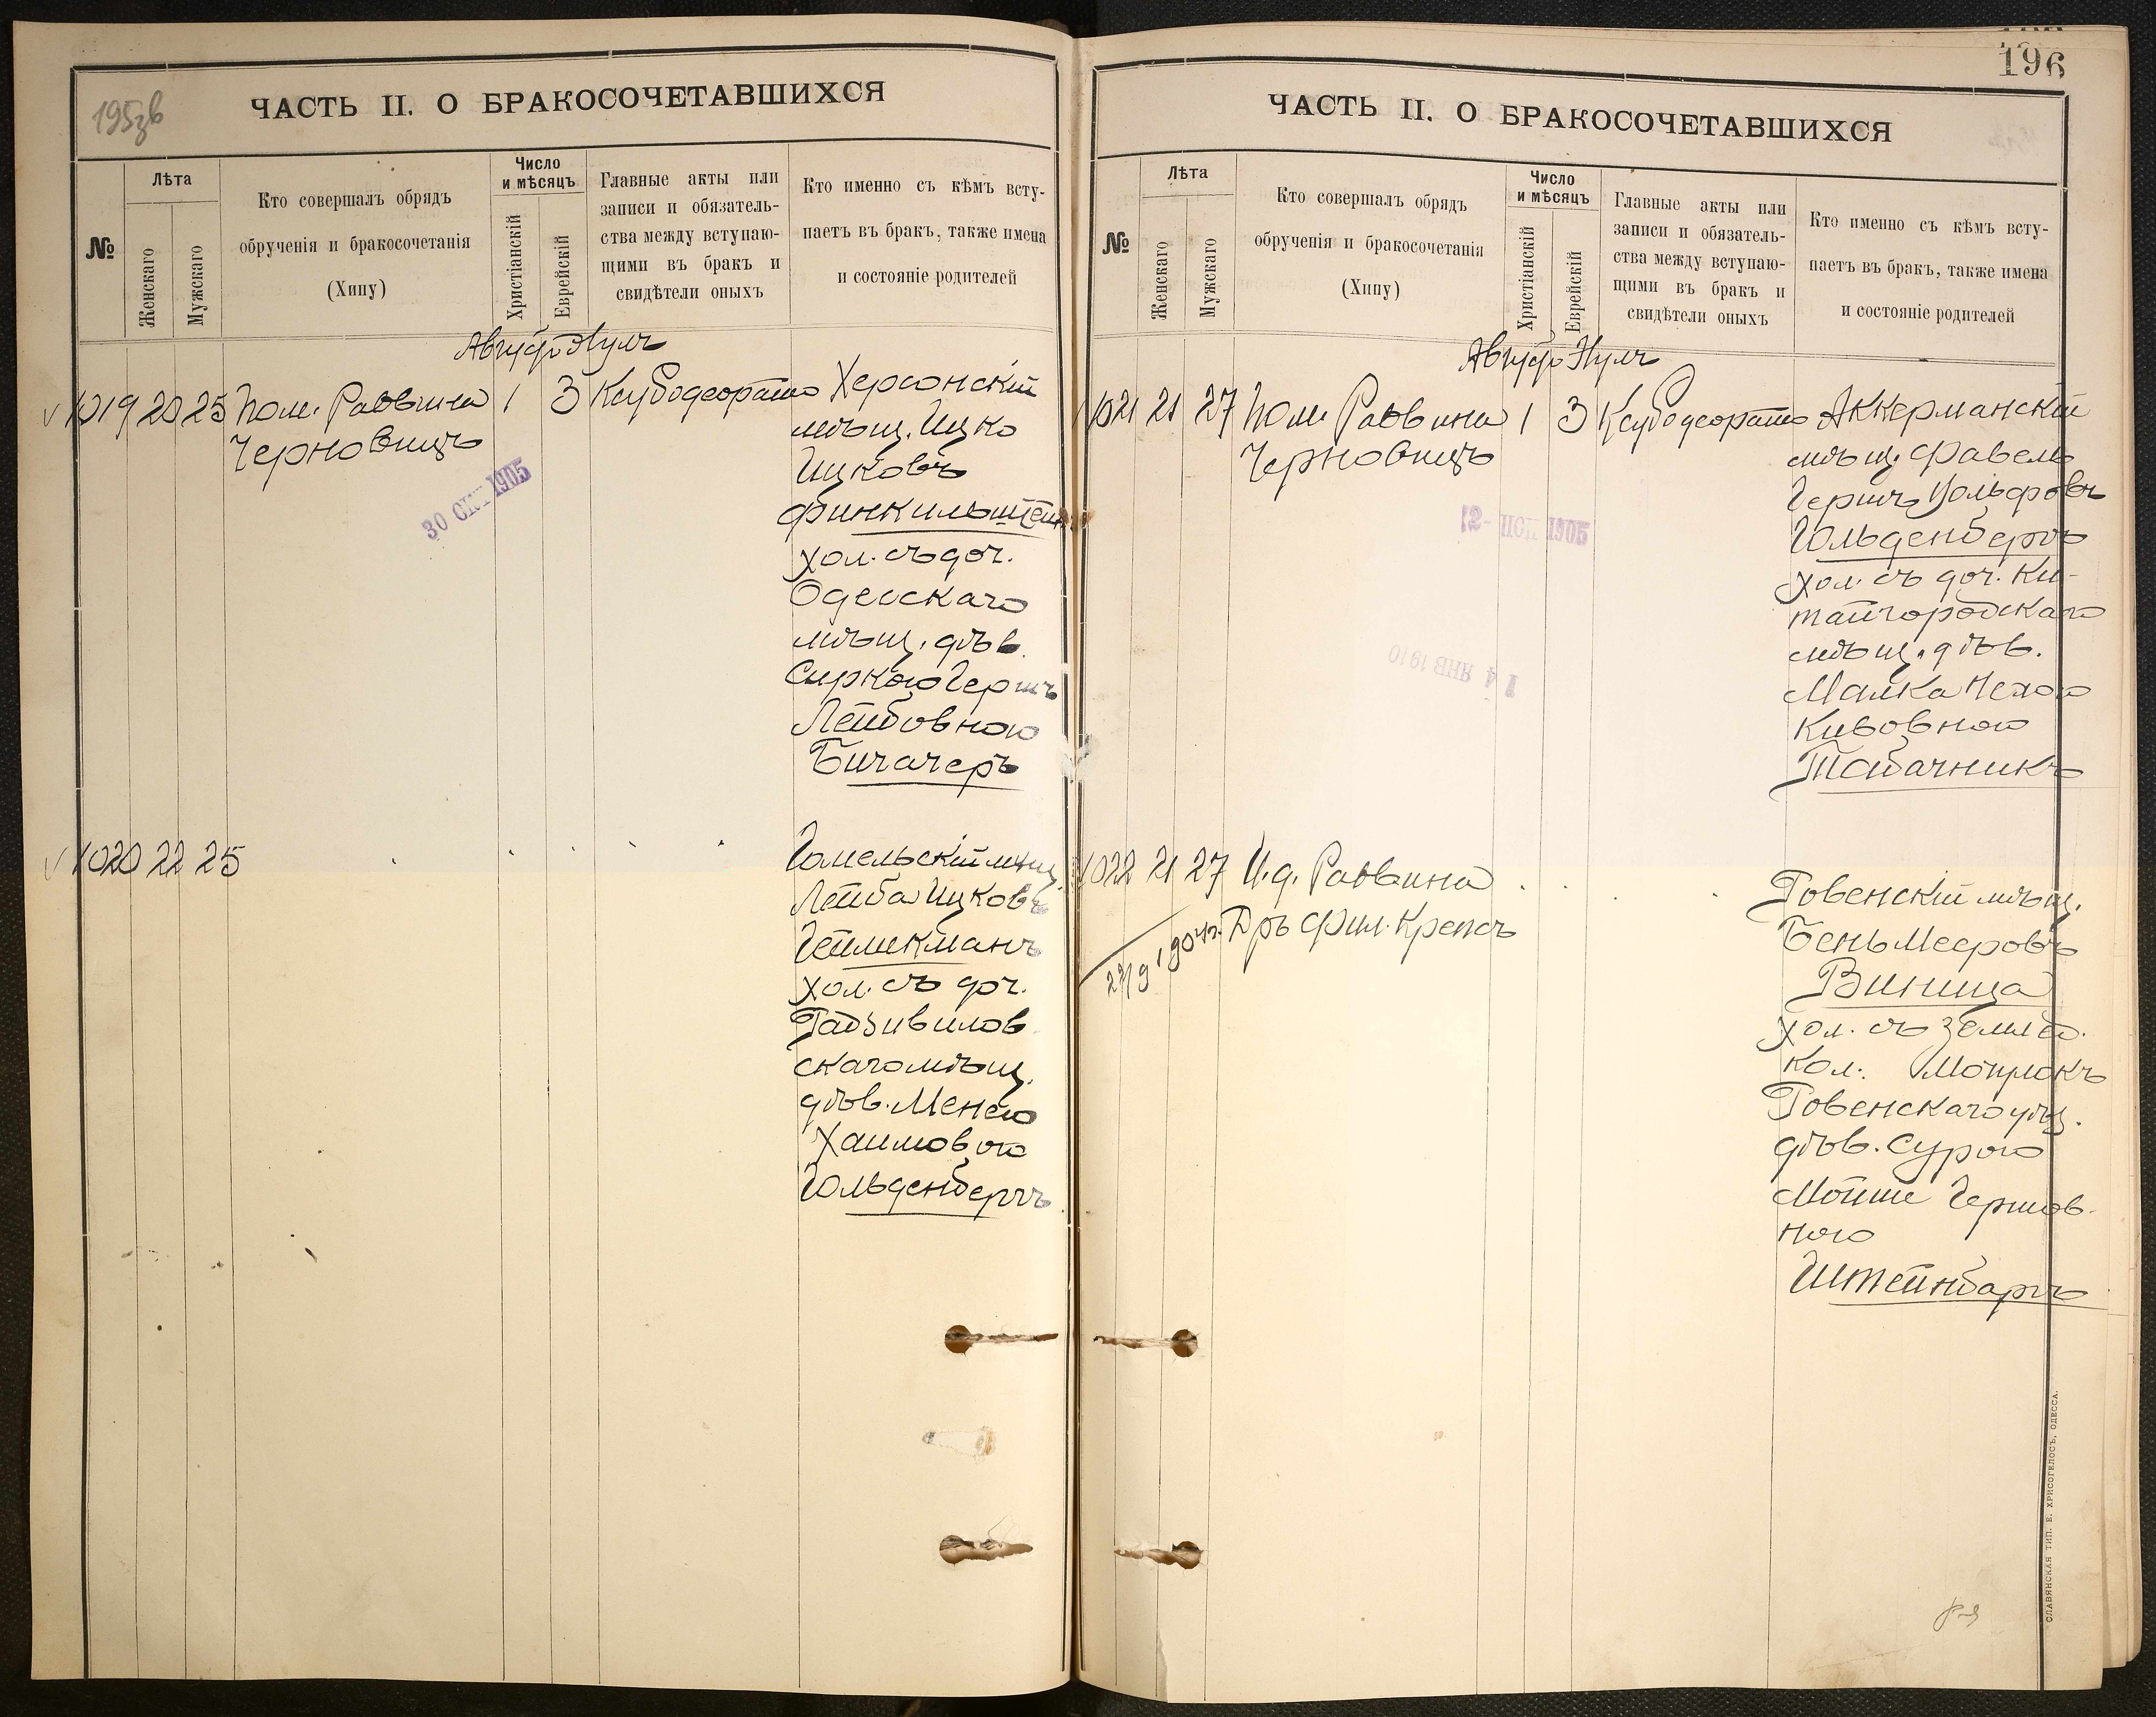 195зв
ЧАСТЬ II. О БРАКОСОЧЕТАВШИХСЯ
№
Лѣта
Женскаго
Мужскаго
Кто совершалъ обрядъ
обрученія и бракосочетанія
(Хипу)
Число
и мѣсяцъ
Христіанскій
Еврейскій
Главные акты или
записи и обязатель-
ства между вступаю-
щими въ бракъ и
свидѣтели оныхъ
Кто именно съ кѣмъ всту-
паетъ въ бракъ, также имена
и состояніе родителей
Августъ Элулъ
1019 20 25 Пом. Раввина 1 3 Херсонскій
Черновицъ
мѣщ. Ицко
Ицковъ
Финкильштейнъ
хол. съ доч.
Одесскаго
мѣщ. дѣв.
Сиркою Гершъ
Лейбовною
Бичачеръ
30 1905
1020 22 25
Гомельскій мѣщ.
Лейба Ицковъ
Гейликманъ
хол. съ доч.
Радзивилов
скаго мѣщ.
дѣв. Менею
Хаимовою
Гольденбергъ
196
ЧАСТЬ II. О БРАКОСОЧЕТАВШИХСЯ
№
Лѣта
Женскаго
Мужскаго
Кто совершалъ обрядъ
обрученія и бракосочетанія
(Хипу)
Число
и мѣсяцъ
Христіанскій
Еврейскій
Главные акты или
записи и обязатель-
ства между вступаю-
щими въ бракъ и
свидѣтели оныхъ
Кто именно съ кѣмъ всту-
паетъ въ бракъ, также имена
и состояніе родителей
Августъ Элулъ
1021 21 27 Пом. Раввина 1 3 Аккерманскій
Черновицъ
мѣщ. Фавель
Гершъ Вольфовъ
Гольденбергъ
хол. съ доч. Ки-
тайгородскаго
мѣщ. дѣв.
Малка Нехою
Кивовною
Табачникъ
12 1905
14 ЯНВ 1910
1022 21 27 И.д. Раввина
Дръ Фил. Крепсъ
1904г.
Ровенскій мѣщ.
Бень Мееровъ
Виница
хол. съ землед.
Кол.
Ровенскаго уѣз.
дѣв. Сурою
Мойше Гершов-
ною
Штейнбаргъ
СЛАВЯНСКАЯ ТИП. Е. ХРИСОГЕЛОСЪ, ОДЕССА.